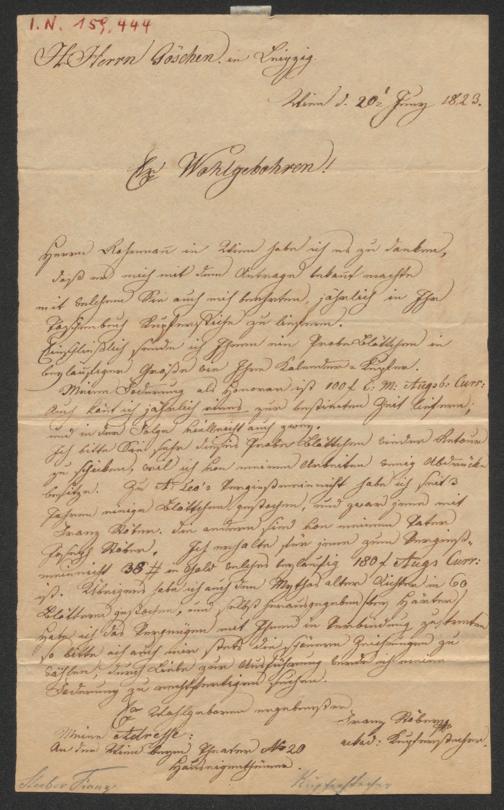 I.N. 159.444
H. Herrn Göschen in Leipzig.
Wien d. 20t Juny 1823.
Ew Wohlgebohren!
Herrn in Wien habe ich es zu danken,
daß er mich mit dem Antrage bekant machte
mit welchem Sie auch mich beehrten, jährlich in Ihr
Taschenbuch Kupferstiche zu liefern.
Einschließlich sende ich Ihnen ein Probe Blättchen in
beyläufiger Größe von Ihren Kalender-Kupfer.
Meine Foderung als Honorar ist 100 f C: M: Augsb: Curr:
Auch kan ich jährlich eines zur bestimten Zeit liefern;
und in der Folge vielleicht auch zwey.
Ich bitte Sie sehr dieses Probe Blättchen wieder Retour
zu schicken, weil ich von meinen Arbeiten wenig Abdrücke
besitze. Zu A Leo's Vergissmeinnicht habe ich seit 3
Jahren einige Blättchen gestochen, und zwar jene mit
Franz Stöber. Die anderen sind von meinem Vater
Joseph Stöber. Ich erhalte für jene zum Vergiss-
meinnicht 38 # in Gold welches beyläufig 180 f Augs Curr:
ist. Übrigens habe ich auch den Mythos alter Dichter in 60
Blättern gestochen, und selbst herausgegeben
Habe ich das Vergnügen mit Ihnen in Verbindung zu tretten
so bitte ich auch mir stets die schönern Zeichnungen zu
wählen, durch Liebe zur Ausführung werde ich meine
Foderung zu rechtfertigen suchen.
Ew Wohlgebohren ergebenster
Franz Stöber
Meine Adresse:
acad: Kupferstecher.
An der Wien beym Theater No 20
Hauseigenthümer.
Stöber Franz
Kupferstecher